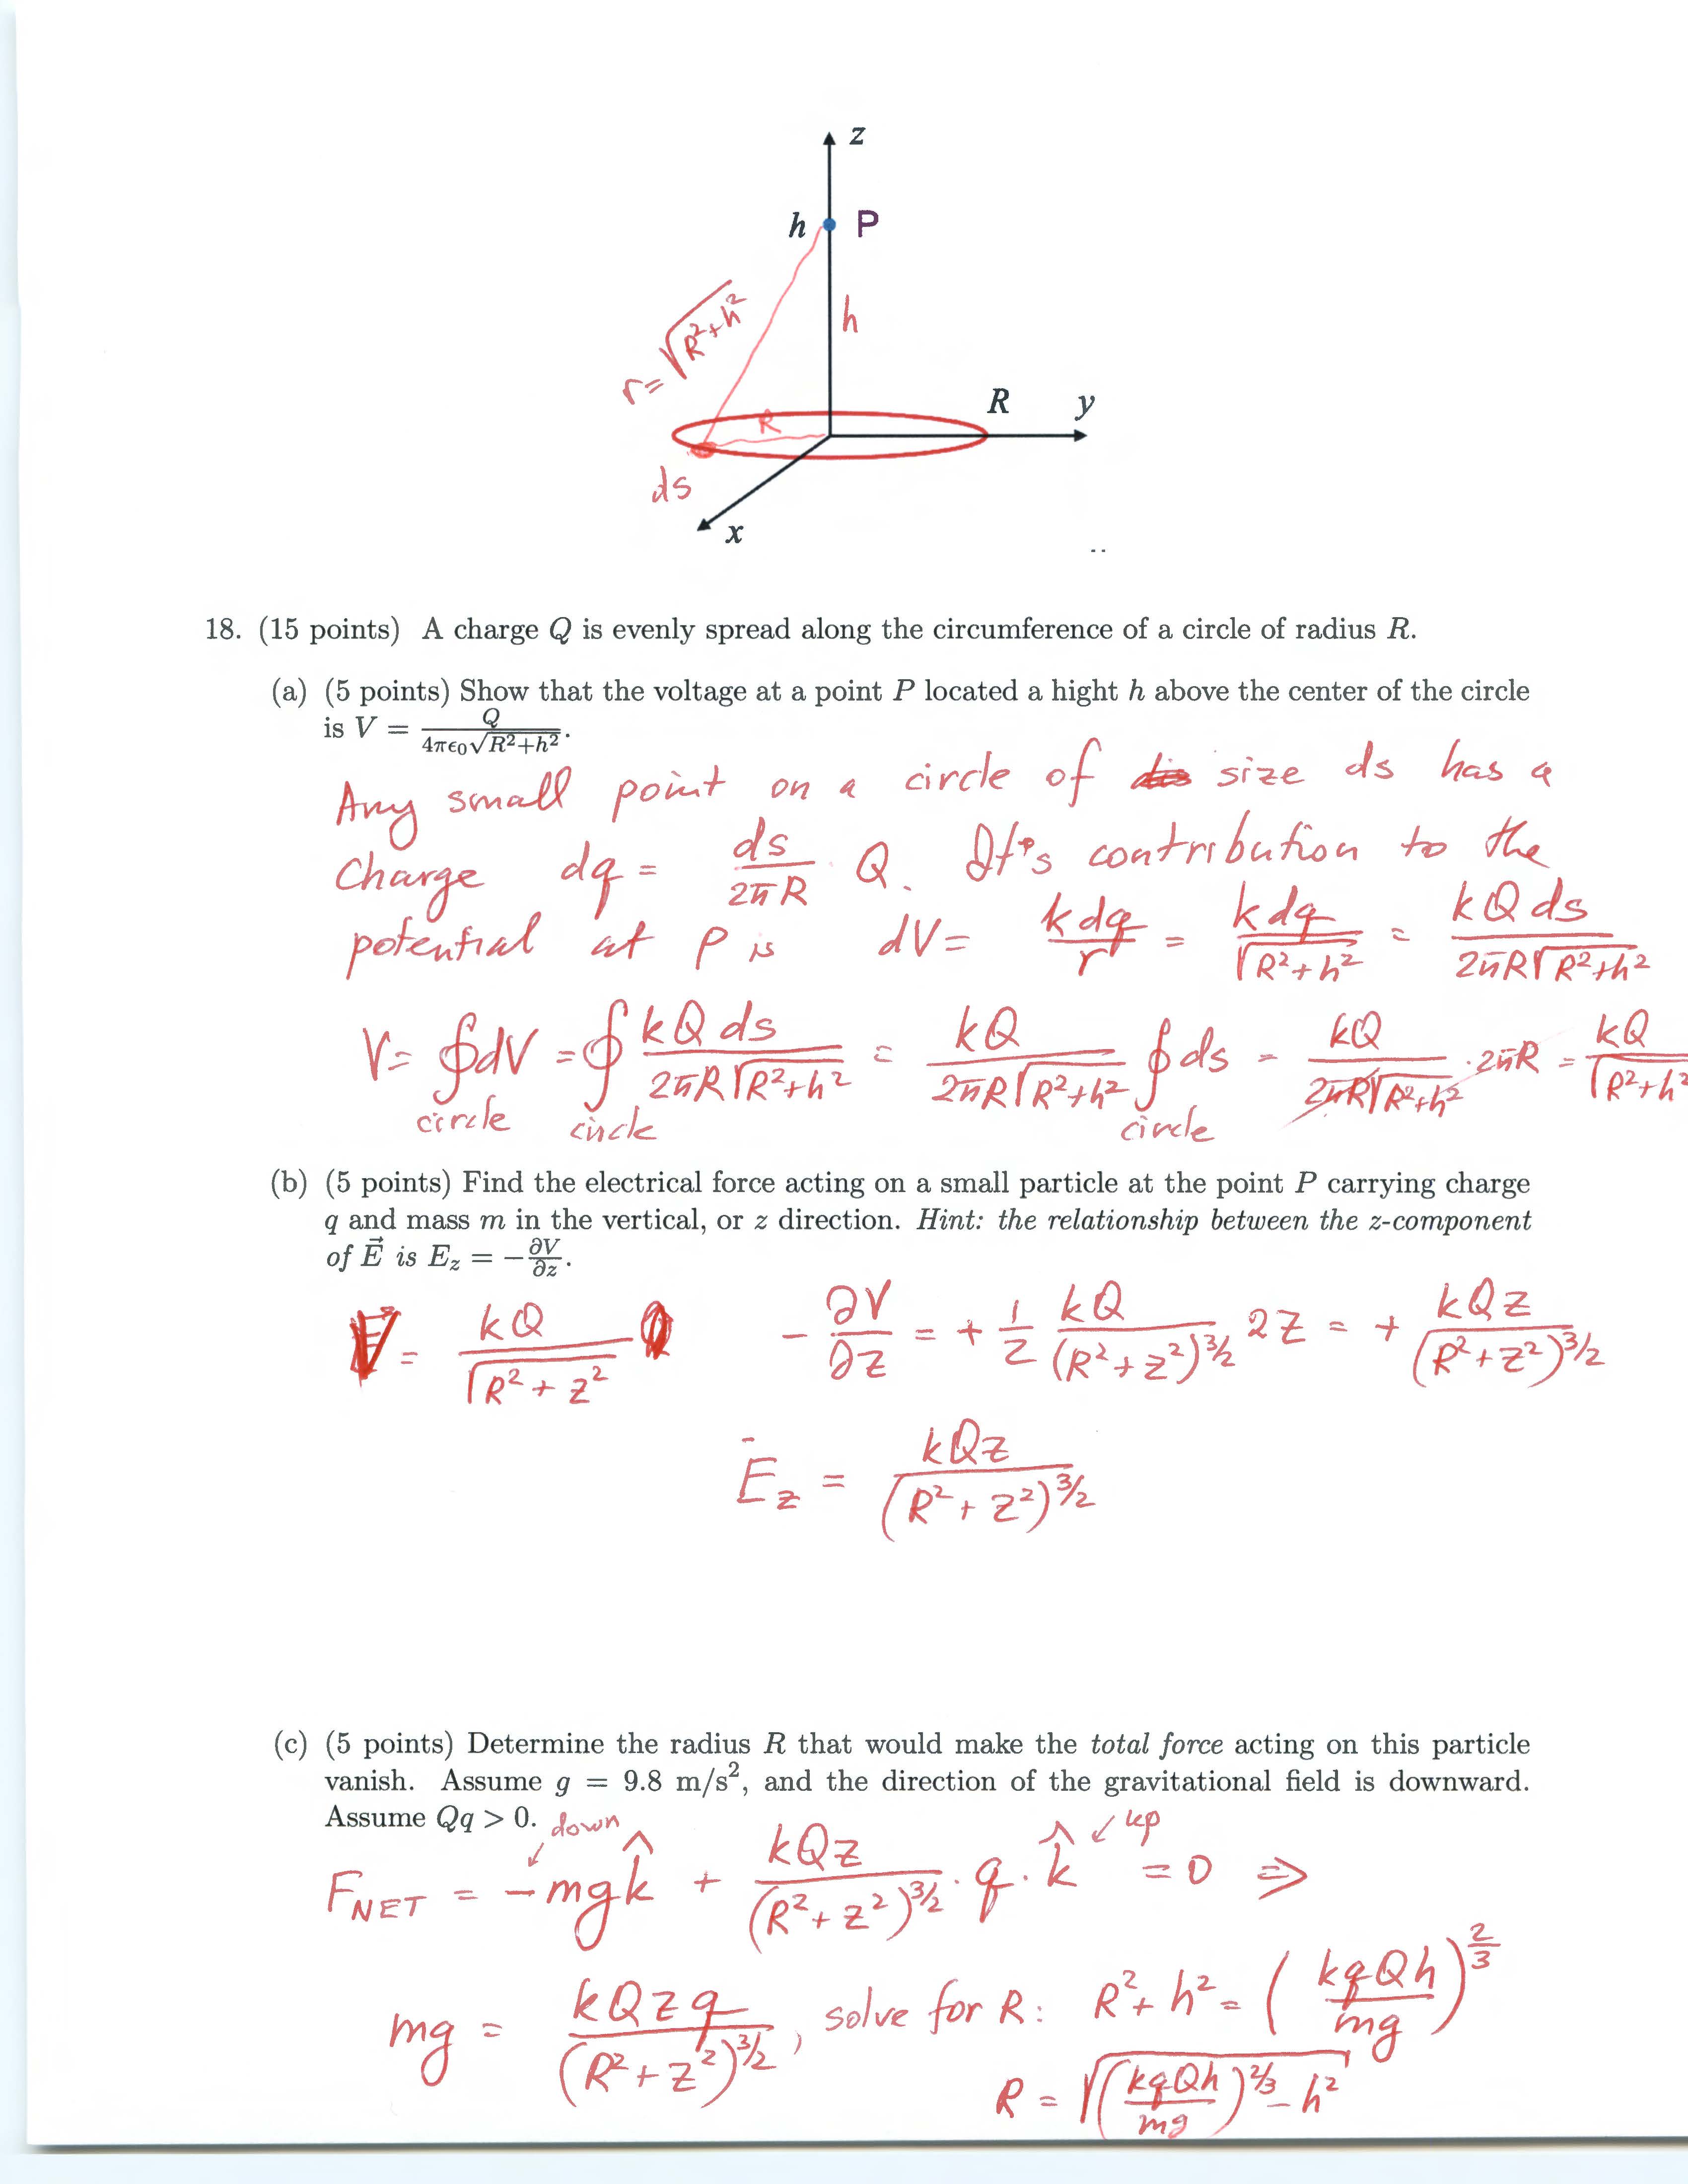 z
h P
r = √R²+h²
h
R
R y
ds
x
18. (15 points) A charge Q is evenly spread along the circumference of a circle of radius R.
(a) (5 points) Show that the voltage at a point P located a hight h above the center of the circle
is V = Q/(4πϵ₀√R²+h²).
Any small point on a circle of size ds has a
charge dq = ds/(2πR) · Q. It's contribution to the
potential at P is dV = k dq/r = k dq/√R²+h² = kQ ds/(2πR√R²+h²)
V = ∮dV = ∮ kQ ds/(2πR√R²+h²) = kQ/(2πR√R²+h²) ∮ds = kQ/(2πR√R²+h²) · 2πR = kQ/√R²+h²
circle circle circle
(b) (5 points) Find the electrical force acting on a small particle at the point P carrying charge
q and mass m in the vertical, or z direction. Hint: the relationship between the z-component
of E⃗ is E_z = −∂V/∂z.
V = kQ/√R²+z² − ∂V/∂z = + 1/2 kQ/(R²+z²)^3/2 2z = + kQz/(R²+z²)^3/2
E_z = kQz/(R²+z²)^3/2
(c) (5 points) Determine the radius R that would make the total force acting on this particle
vanish. Assume g = 9.8 m/s², and the direction of the gravitational field is downward.
Assume Qq > 0.
down up
F_NET = −mg k̂ + kQz/(R²+z²)^3/2 · q · k̂ = 0 ⇒
mg = kQzq/(R²+z²)^3/2, solve for R: R²+h² = (kqQh/mg)^2/3
R = √(kqQh/mg)^2/3 − h²